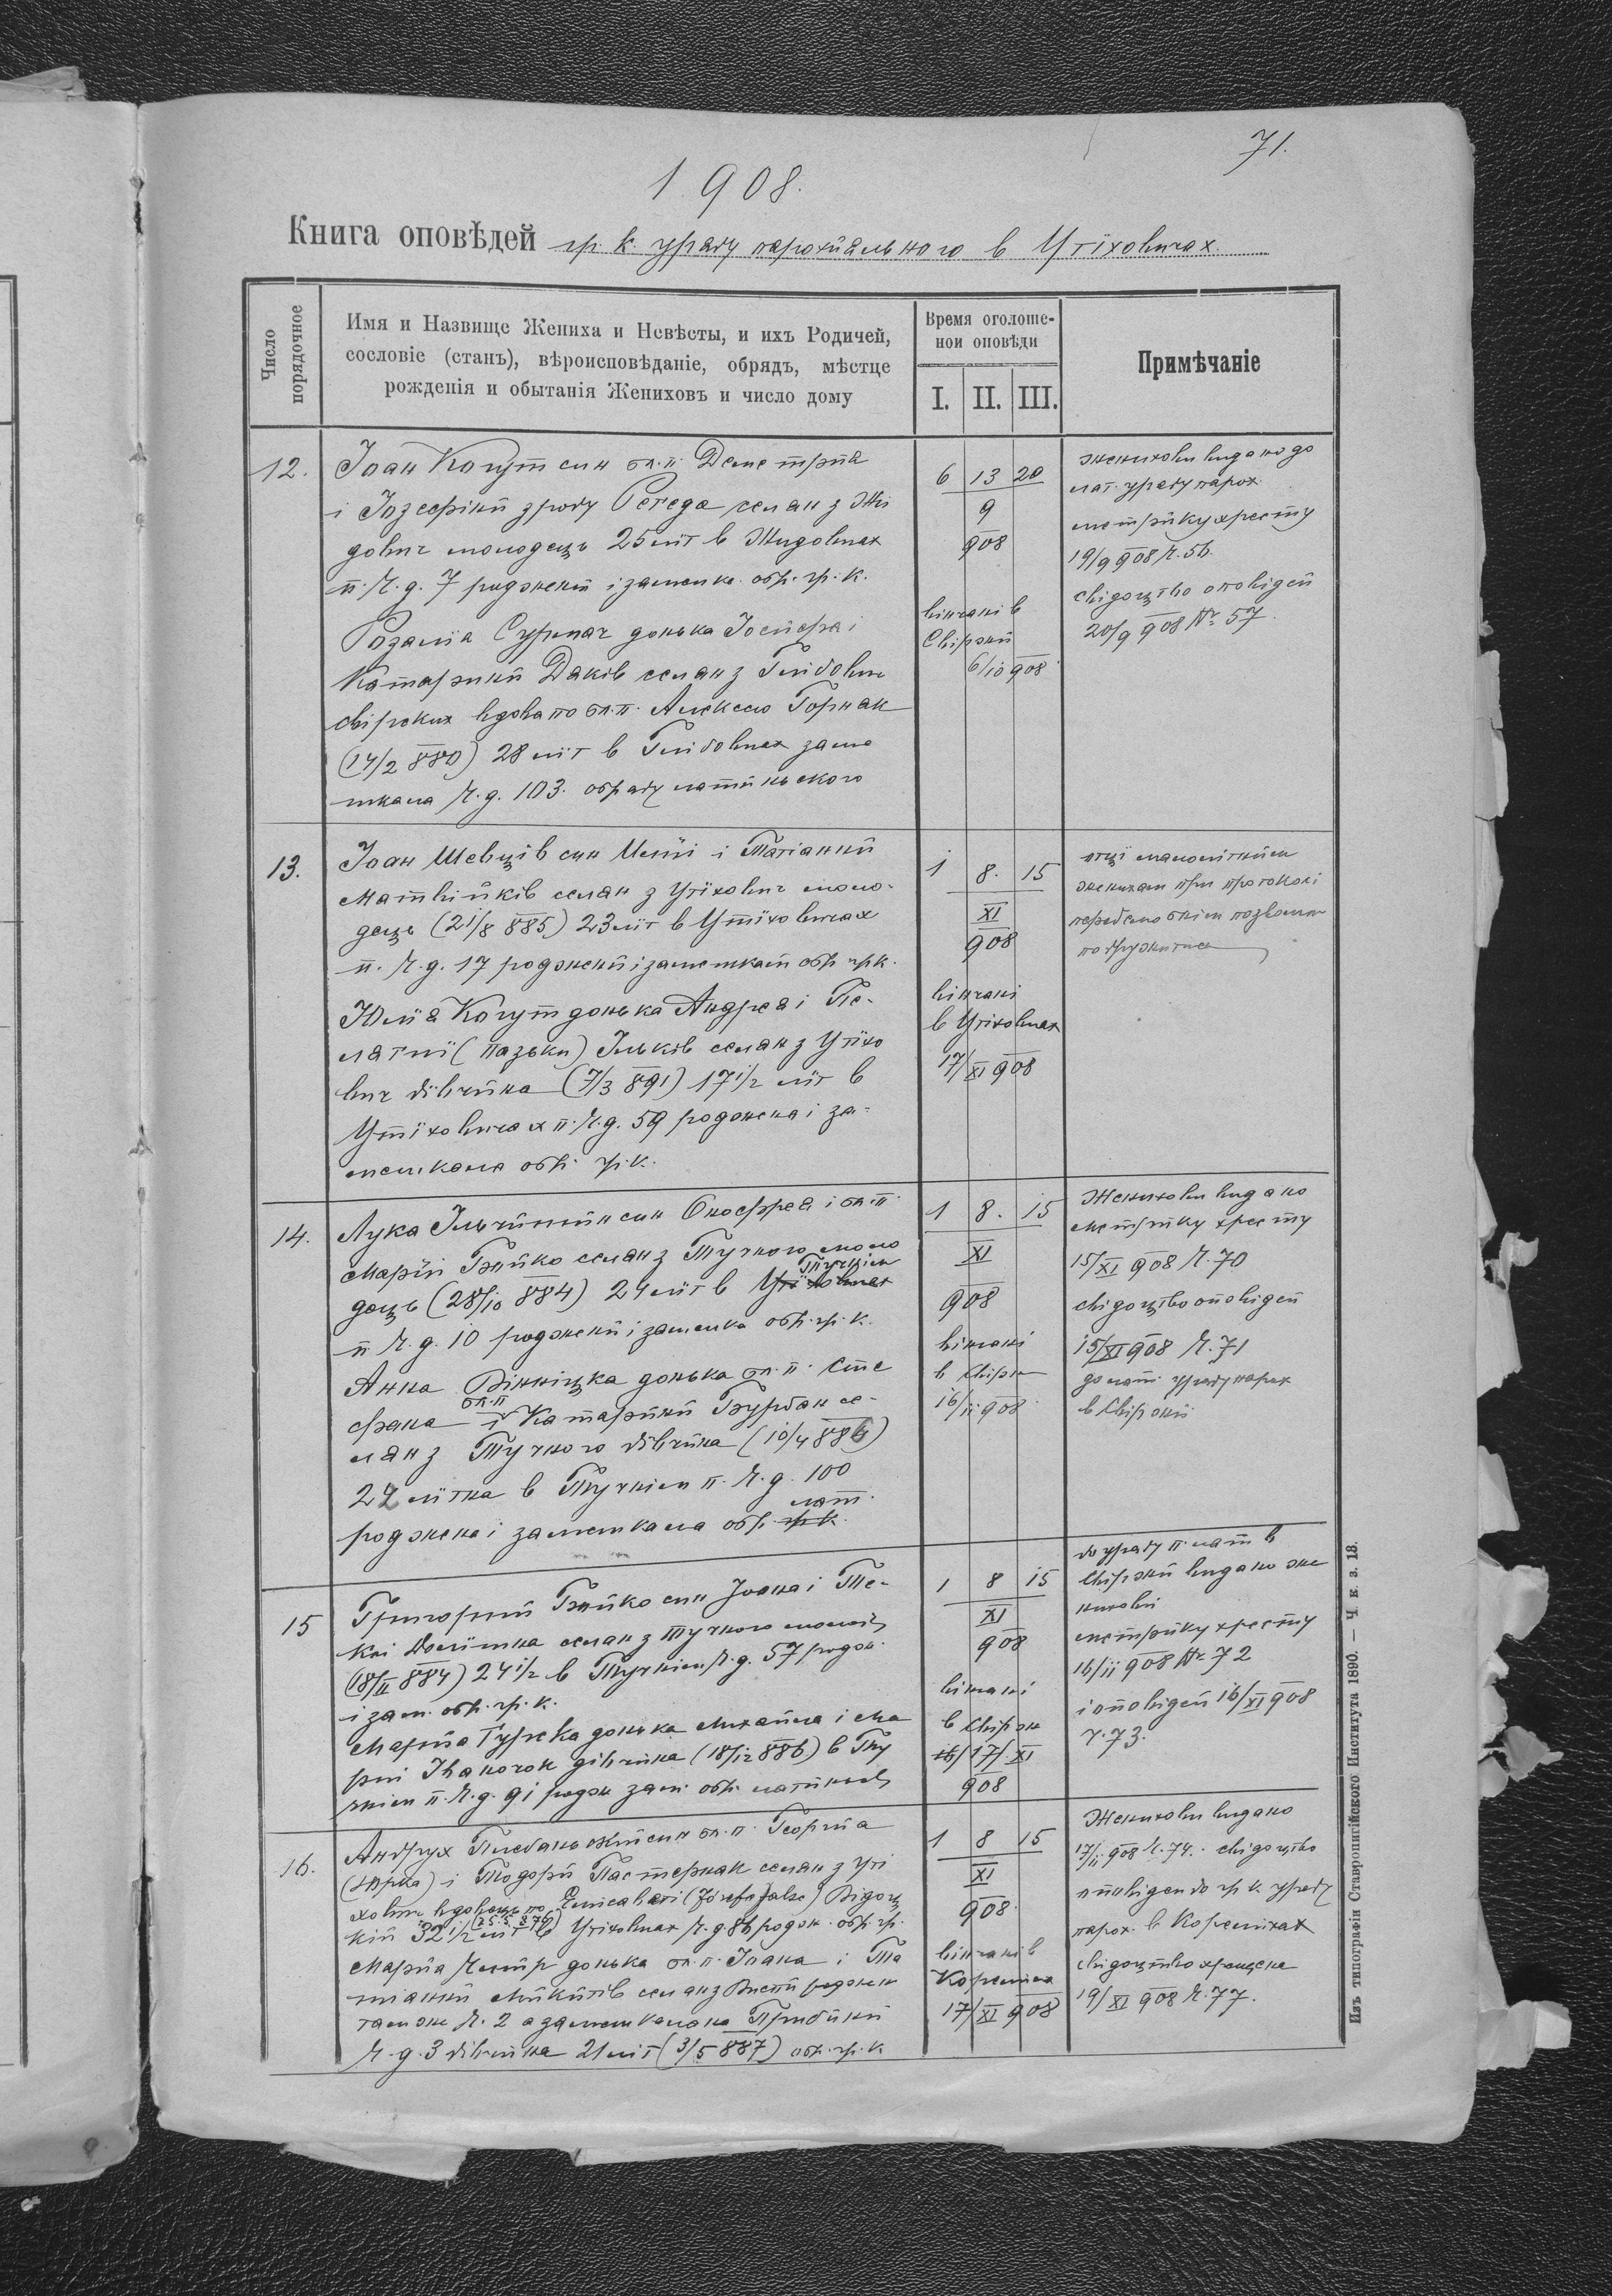 71.
1908.
Книга оповѣдей гр. к. уряду парохіяльного в Утїховичах.
Число порядочное
Имя и Назвище Жениха и Невѣсты, и ихъ Родичей,
сословіе (станъ), вѣроисповѣданіе, обрядъ, мѣстце
рожденія и обытанія Жениховъ и число дому
Время оголоше-
нои оповѣди
I. II. III.
Примѣчаніе
12.
Іоан Когут син бл. п. Деметрия
і Іозефіни з роду Регеда селян з Жи
дович молодець 25 літ в Жидовичах
п. Ч. д. 7 роджений і замешк. обр. гр. к.
Розалїя донька Йосифа і
Катарини Даків селян з Глїбович
свірских вдова по бл. п. Алексею Горняк
(14/2 880) 28 лїт в Глїбовичах заме
шкала Ч. д. 103. обряду латиньского
6 13 20
9
908
вінчані в
Свіржи
6/10 908
женихови видано до
лат. уряду парох.
метрику хресту
19/9 908 Ч. 56.
свідоцтво оповідей
20/9 908 № 57.
13.
Іоан Шевців син Илїї і Татіанни
Матвійків селян з Утїхович моло-
дець (21/8 885) 23 лїт в Утїховичах
п. Ч. д. 17 роджений і замешкалий обр. гр. к.
Юлїя Когут донька Андрея і Пе-
лагії (Пазьки) Ільків селян з Утїхо
вич дївчина (7/3 891) 17 1/2 лїт в
Утїховичах п. Ч. д. 59 роджена і за-
мешкала обр. гр. к.
1 8. 15
XI
908
вінчані
в Утїховичах
17/XI 908
малолїтним
женихам при протоколї
14.
Лука Ільчишин син Онофрея і бл. п.
Марії Бойко селян з Тучного моло
дець (28/10 884) 24 лїт в Утїховичах Тучнім
п. Ч. д. 10 роджений і замешка. обр. гр. к.
Анна Вінніцка донька бл. п. Сте
фана і бл. п. Катарини Бурбан се-
лян з Тучного дївчина (10/4 884)
24 лїтна в Тучнім п. Ч. д. 100
роджена і замешкала обр. гр. к. лат.
1 8. 15
XI
908
вінчані
в Свірж
16/11 908
Женихови видано
метрику хресту
15/XI 908 Ч. 70
свідоцтво оповідей
15/XI 908 Ч. 71
до лат. уряду парох
в Свіржи
15
Григорий Бойко син Іоана і Те-
клї селян з Тучного молод.
(18/II 884) 24 1/2 в Тучнім Ч. д. 57 родж.
і зам. обр. гр. к.
Марія Гурска донька Михайла і Ма
рії Іваночок дївчина (18/12 886) в Ту
чнім п. Ч. д. 91 родж зам. обр. латиньск.
1 8 15
XI
908
вінчані
в Свірж
16/ 17/XI
908
до уряду п. лат в
Свіржи видано же
нихови
метрику хресту
16/11 908 № 72
і оповідей 16/XI 908
Ч. 73.
16.
Андрух син бл. п. Георгія
(Юрка) і Тодори Пастернак селян з Утї
хович вдовець по Елисаветї (Józefa false) Відоц
кій 32 1/2 лїт (25.5.876) в Утїховичах Ч. д. 86 родж. обр. гр.
Марія донька бл. п. Іоана і Та
тіанни Микитїв селян з роджен
там же Ч. 2 а замешкала на
Ч. д. 3 дївчина 21 лїт (3/5 887) обр. гр. к.
1 8 15
XI
908.
вінчані в
17/XI 908
Женихови видано
17/11 908 Ч. 74. свідоцтво
оповіден до гр. к. уряду
парох. в Корелїчах
свідоцтво хрещеня
19/XI 908 Ч. 77.
Изъ типографіи Ставропигійского Института 1890. — Ч. к. з. 18.